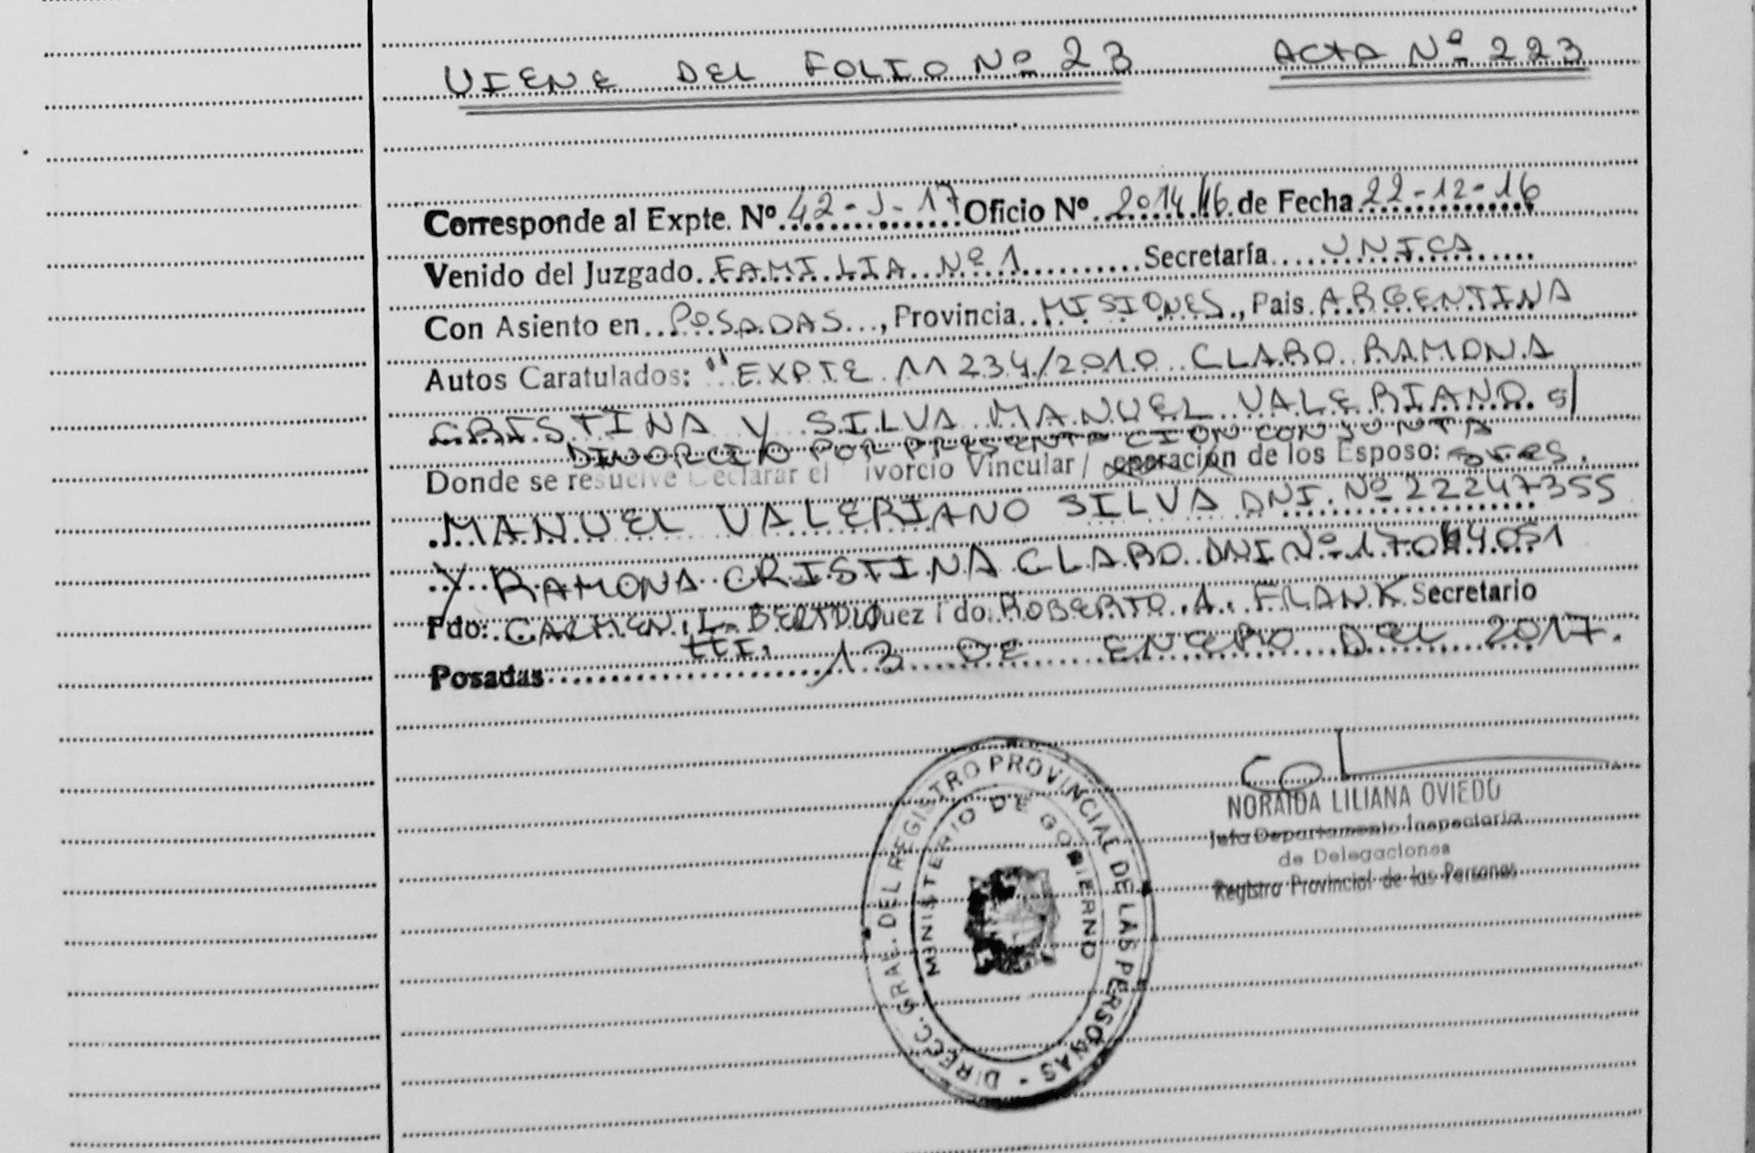 VIENE DEL FOLIO Nº 23 ACTA Nº 223
Corresponde al Expte. Nº 42-J-17 Oficio Nº 2014/16 de Fecha 22-12-16
Venido del Juzgado FAMILIA Nº 1 Secretaría UNICA
Con Asiento en POSADAS, Provincia MISIONES, Pais ARGENTINA
Autos Caratulados: "EXPTE 11234/2010 CLARO RAMONA
CRISTINA Y SILVA MANUEL VALERIANO s/
DIVORCIO POR PRESENTACION CONJUNTA
Donde se resuelve Declarar el ivorcio Vincular / eparación de los Esposo: sres.
MANUEL VALERIANO SILVA DNI. Nº 22247355
Y RAMONA CRISTINA CLARO DNI Nº 17.044.051
Fdo: CARMEN L. uez Fdo. ROBERTO A. FRANK Secretario
Posadas 13 DE ENERO DEL 2017.
NORAIDA LILIANA OVIEDO
Jefa Departamento Inspectoría
de Delegaciones
Registro Provincial de las Personas
DIRECC. GRAL. DEL REGISTRO PROVINCIAL DE LAS PERSONAS -
MINISTERIO DE GOBIERNO